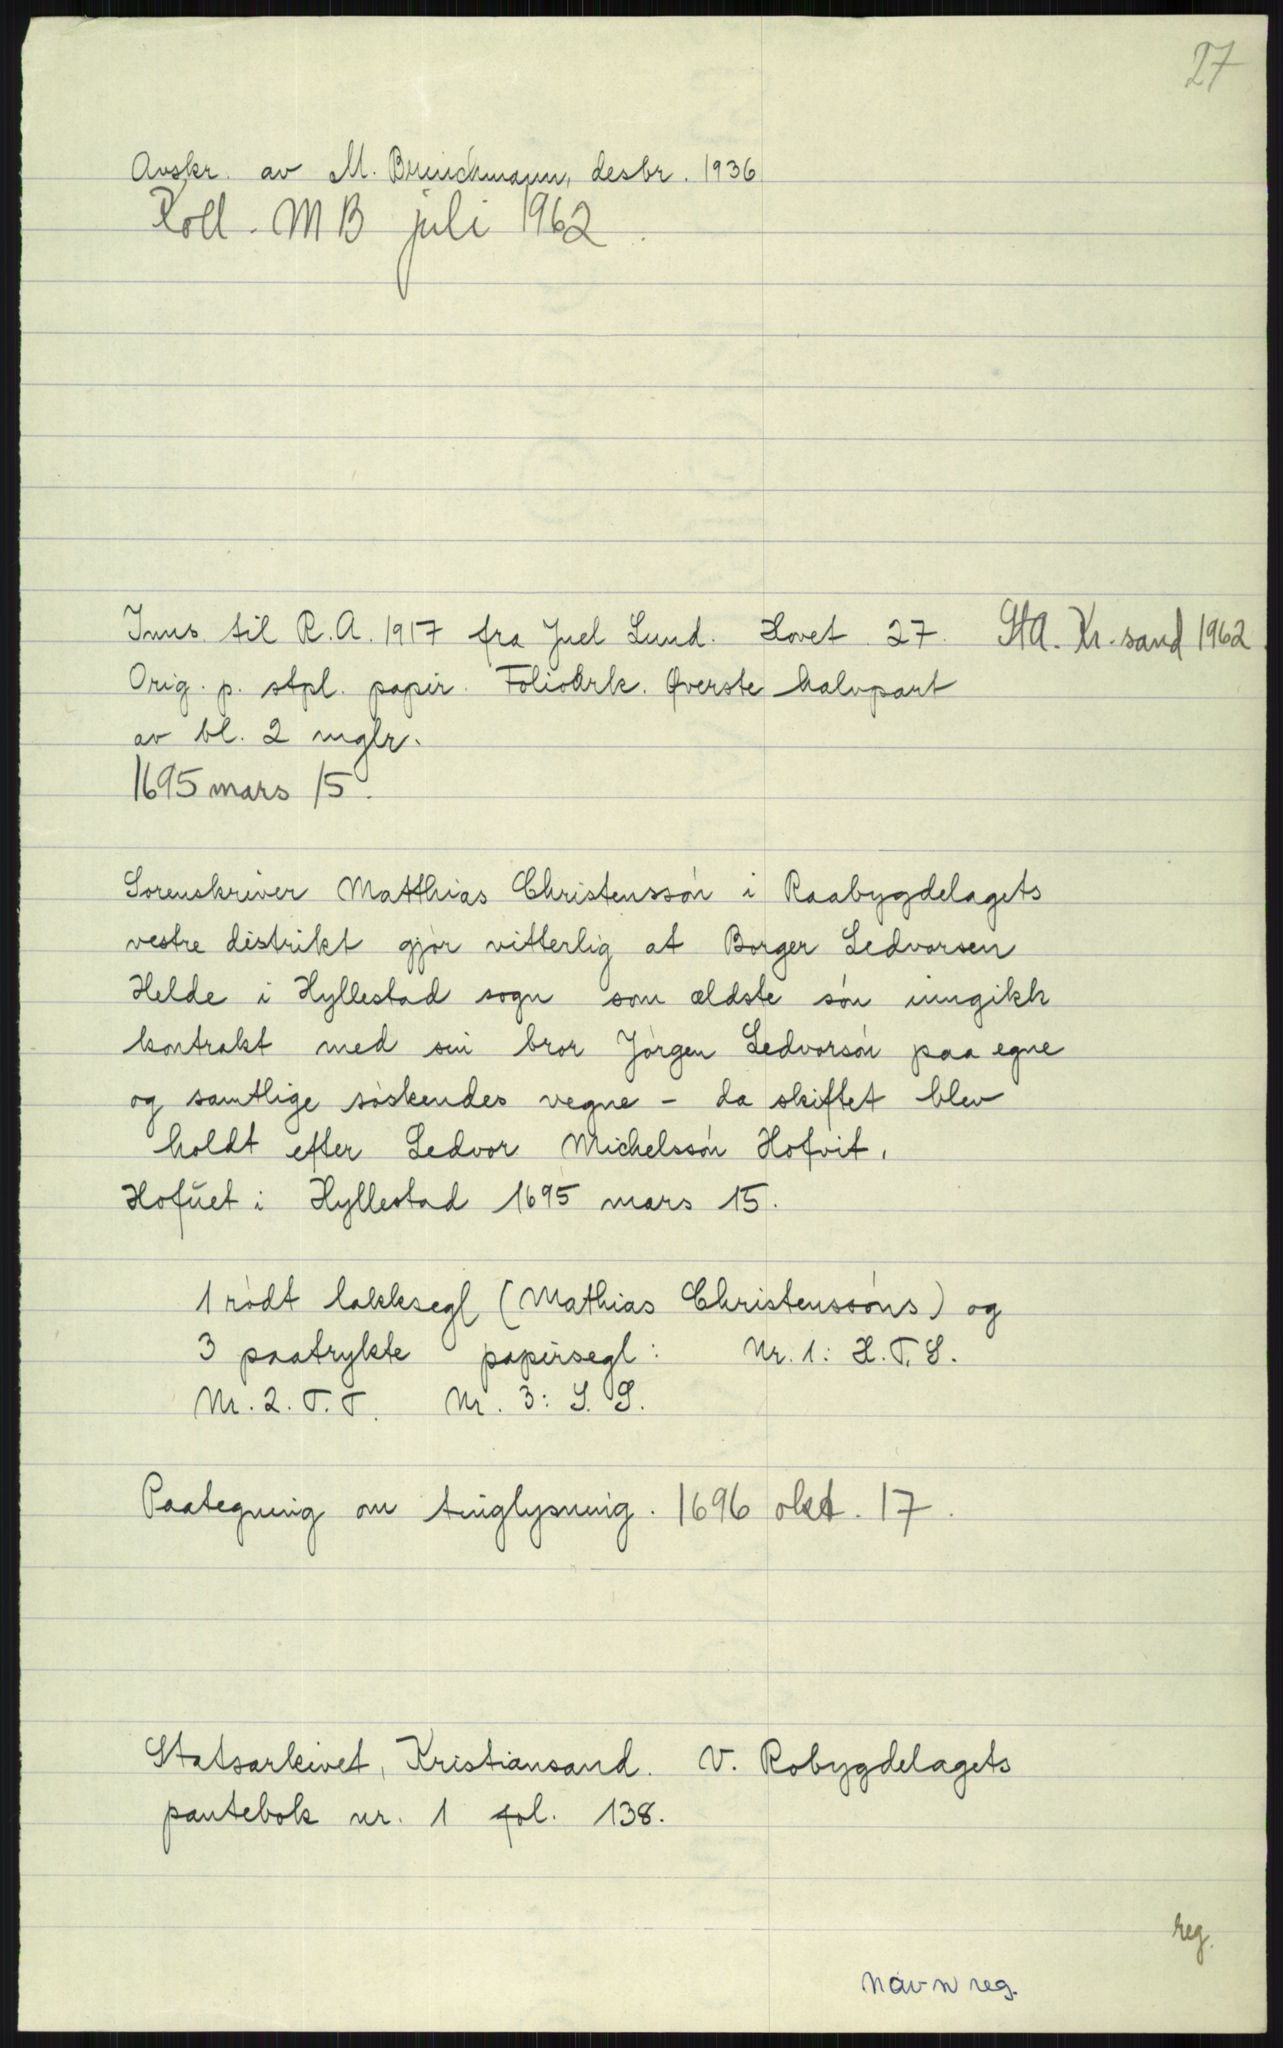 27
Avskr. av M. Brinchmann, desbr. 1936
Koll. MB juli 1962.
Inns. til R.A. 1917 fra Juel Lund. Hovet 27. StA. Kr.sand 1962.
Orig. p. stpl. papir. Folioark. Øverste halvpart
av bl. 2 mglr.
1695 mars 15.
Sorenskriver Matthias Christenssón i Raabygdelagets
vestre distrikt gjór vitterlig at Borger Ledvorsen
Helde i Hyllestad sogn som ældste són inngikk
kontrakt med sin bror Jórgen Ledvorsón paa egne
og samtlige sóskendes vegne - da skiftet blev
holdt efter Ledvor Michelssón Hofvit.
Hofŭet i Hyllestad 1695 mars 15.
1 ródt lakksegl (Mathias Christenssóns) og
3 paatrykte papirsegl: Nr. 1: H.T.S.
Nr. 2. T.T. Nr. 3: S.S.
Paategning om tinglysning. 1696 okt. 17.
Statsarkivet, Kristiansand. V. Robygdelagets
pantebok nr. 1 fol. 138.
reg.
navnreg.